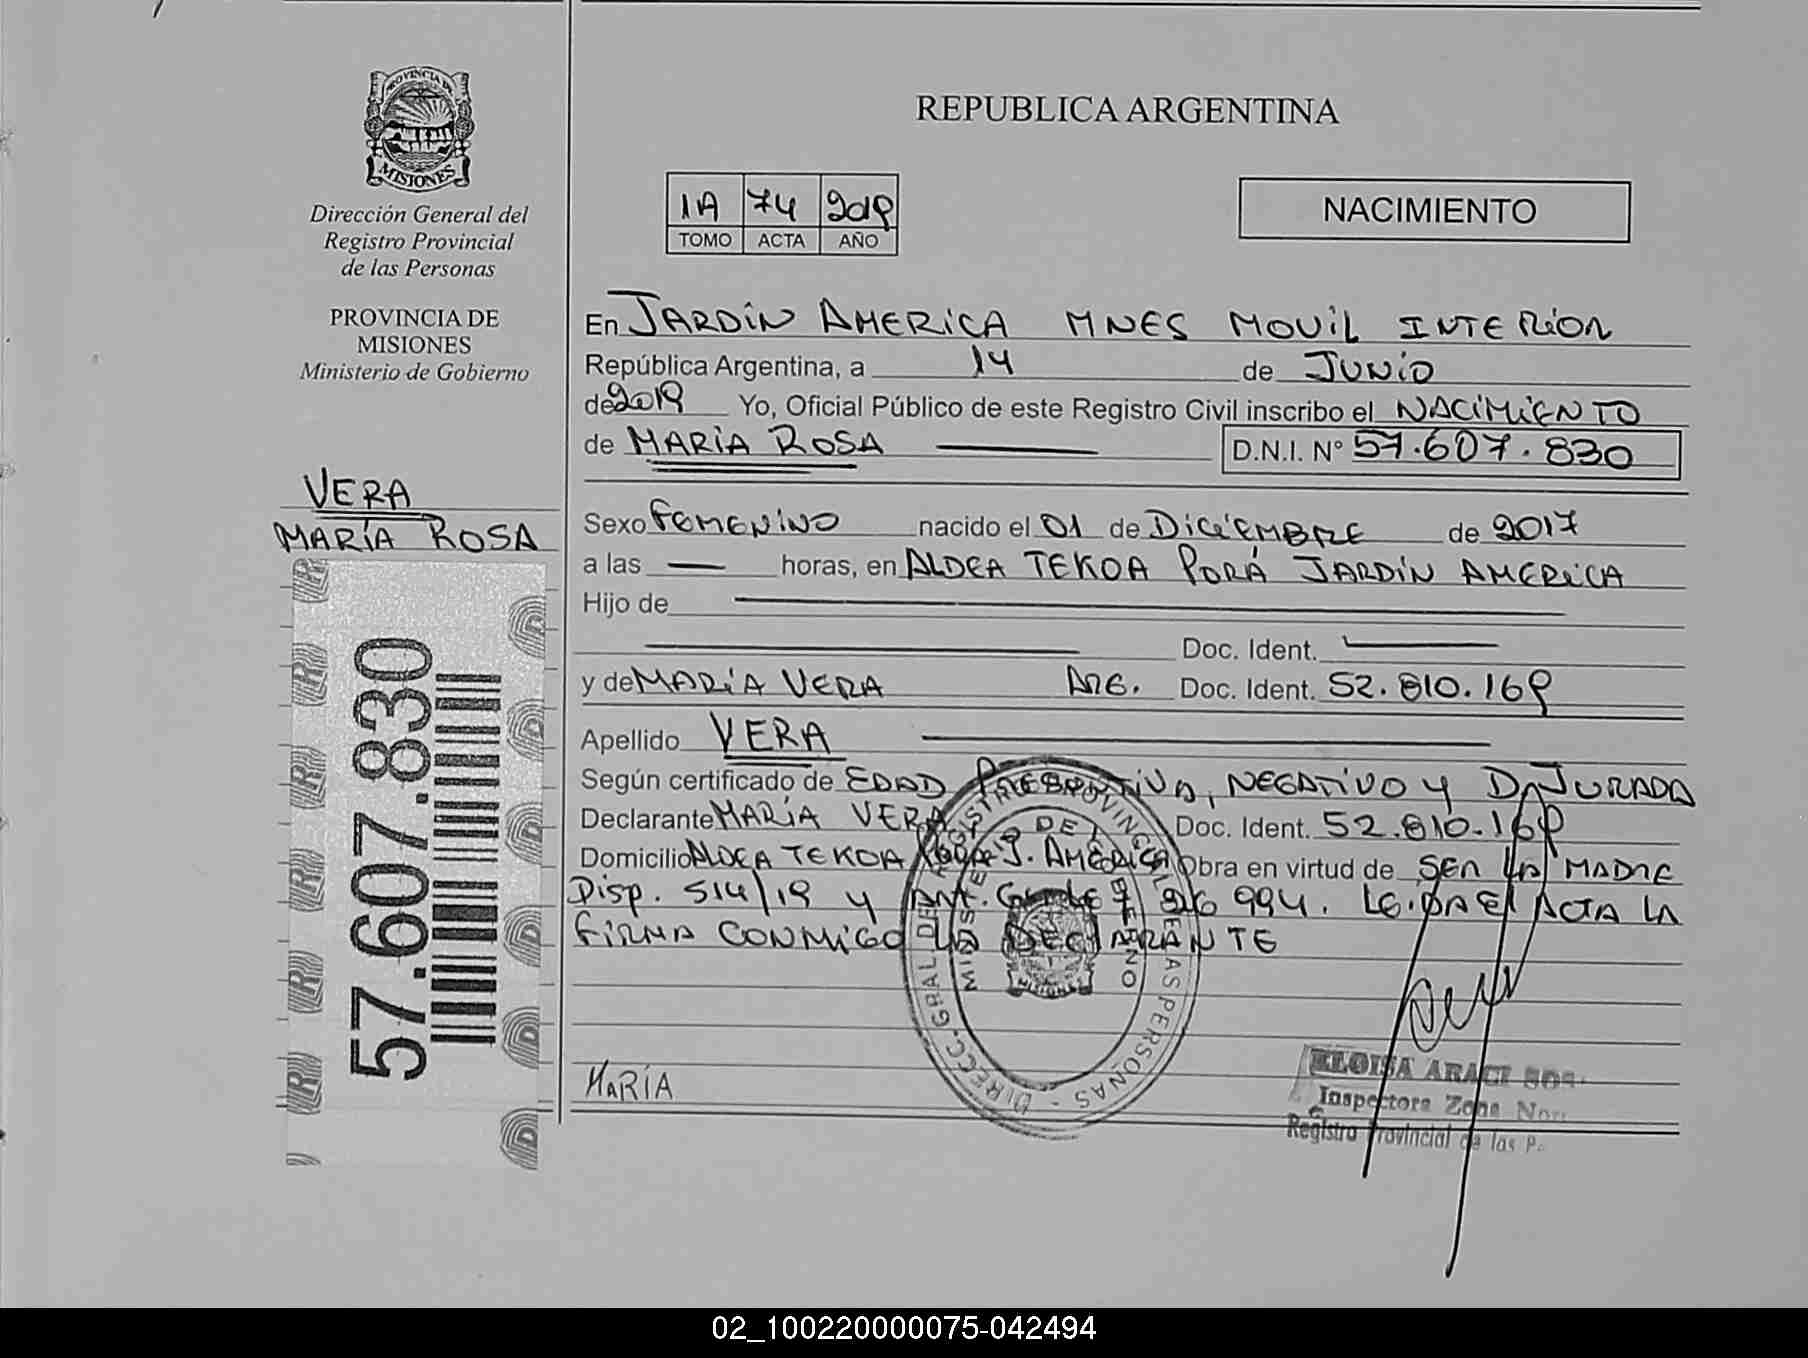 PROVINCIA DE
MISIONES
Dirección General del
Registro Provincial
de las Personas
PROVINCIA DE
MISIONES
Ministerio de Gobierno
VERA
MARÍA ROSA
57.607.830
REPUBLICA ARGENTINA
1A 74 2019
TOMO ACTA AÑO
NACIMIENTO
En JARDIN AMERICA MNES MOVIL INTERIOR
República Argentina, a 14 de JUNIO
de 2019 Yo, Oficial Público de este Registro Civil inscribo el NACIMIENTO
de MARIA ROSA D.N.I. N° 57.607.830
Sexo FEMENINO nacido el 01 de DICIEMBRE de 2017
a las — horas, en ALDEA TEKOA PORÁ JARDIN AMERICA
Hijo de
Doc. Ident.
y de MARIA VERA ARG. Doc. Ident. 52.810.169
Apellido VERA
Según certificado de EDAD PRESUNTIVA, NEGATIVO Y D. JURADA
Declarante MARÍA VERA Doc. Ident. 52.810.169
Domicilio ALDEA TEKOA J. AMERICA Obra en virtud de SER LA MADRE
DISP. 514/19 Y 26 994. LEIDA EL ACTA LA
FIRMA CONMIGO LA DECLARANTE
DIRECC. GRAL. DEL REGISTRO PROVINCIAL DE LAS PERSONAS
MINISTERIO DE GOBIERNO
MISIONES
MARÍA
ELOISA ARACI
Inspectora Zona
Registro Provincial de las
02_100220000075-042494